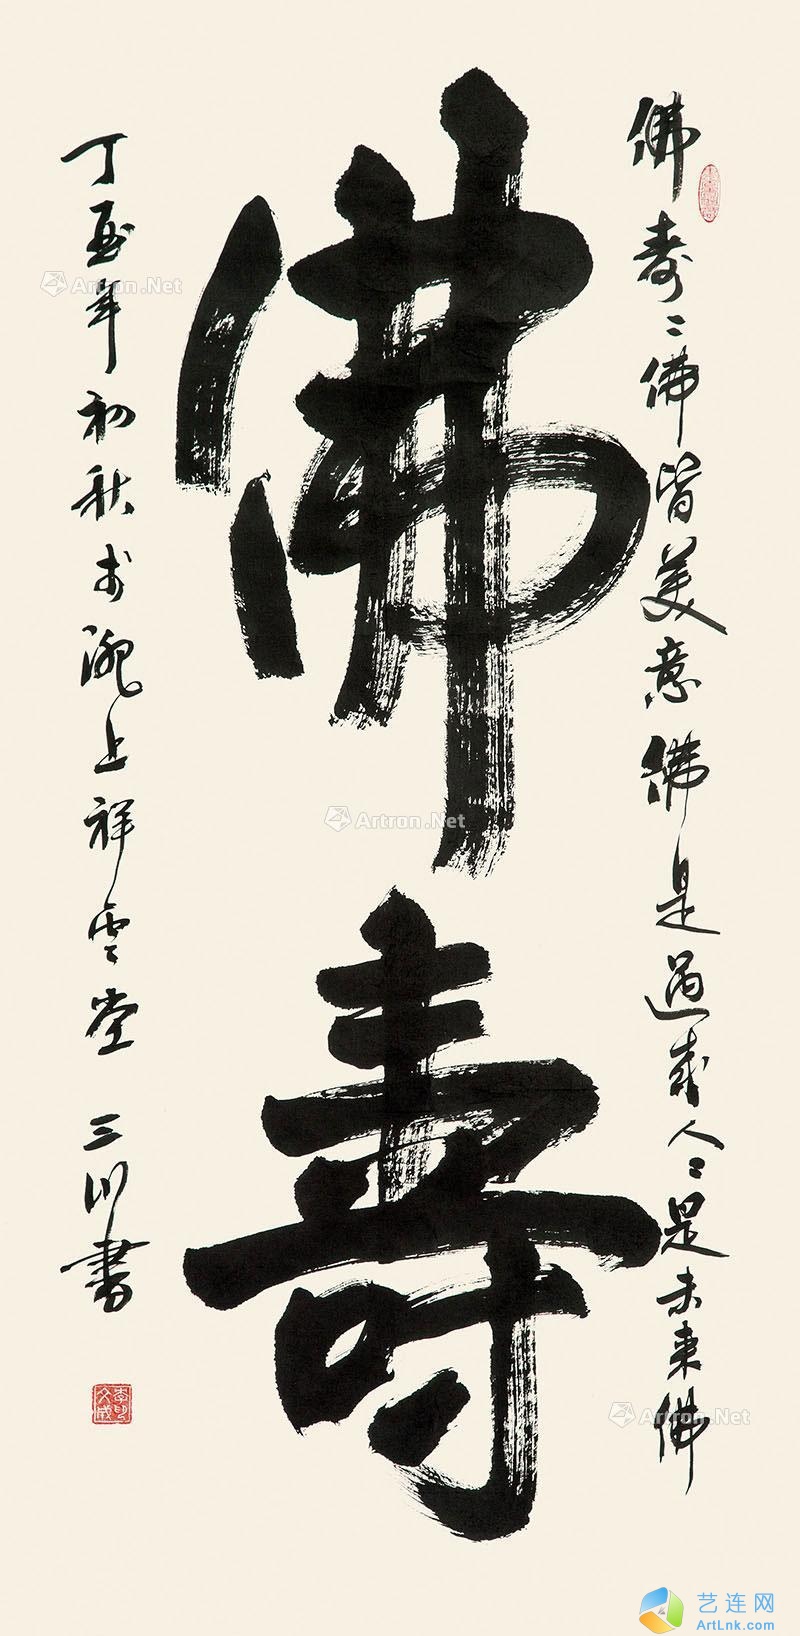 佛壽〻佛皆美意佛是過来人〻是未来佛
佛壽
丁酉年初秋於滬上祥雲堂 三川書
李印文成
Artron.Net
Artron.Net
Artron.Net
艺连网
ArtLnk.com